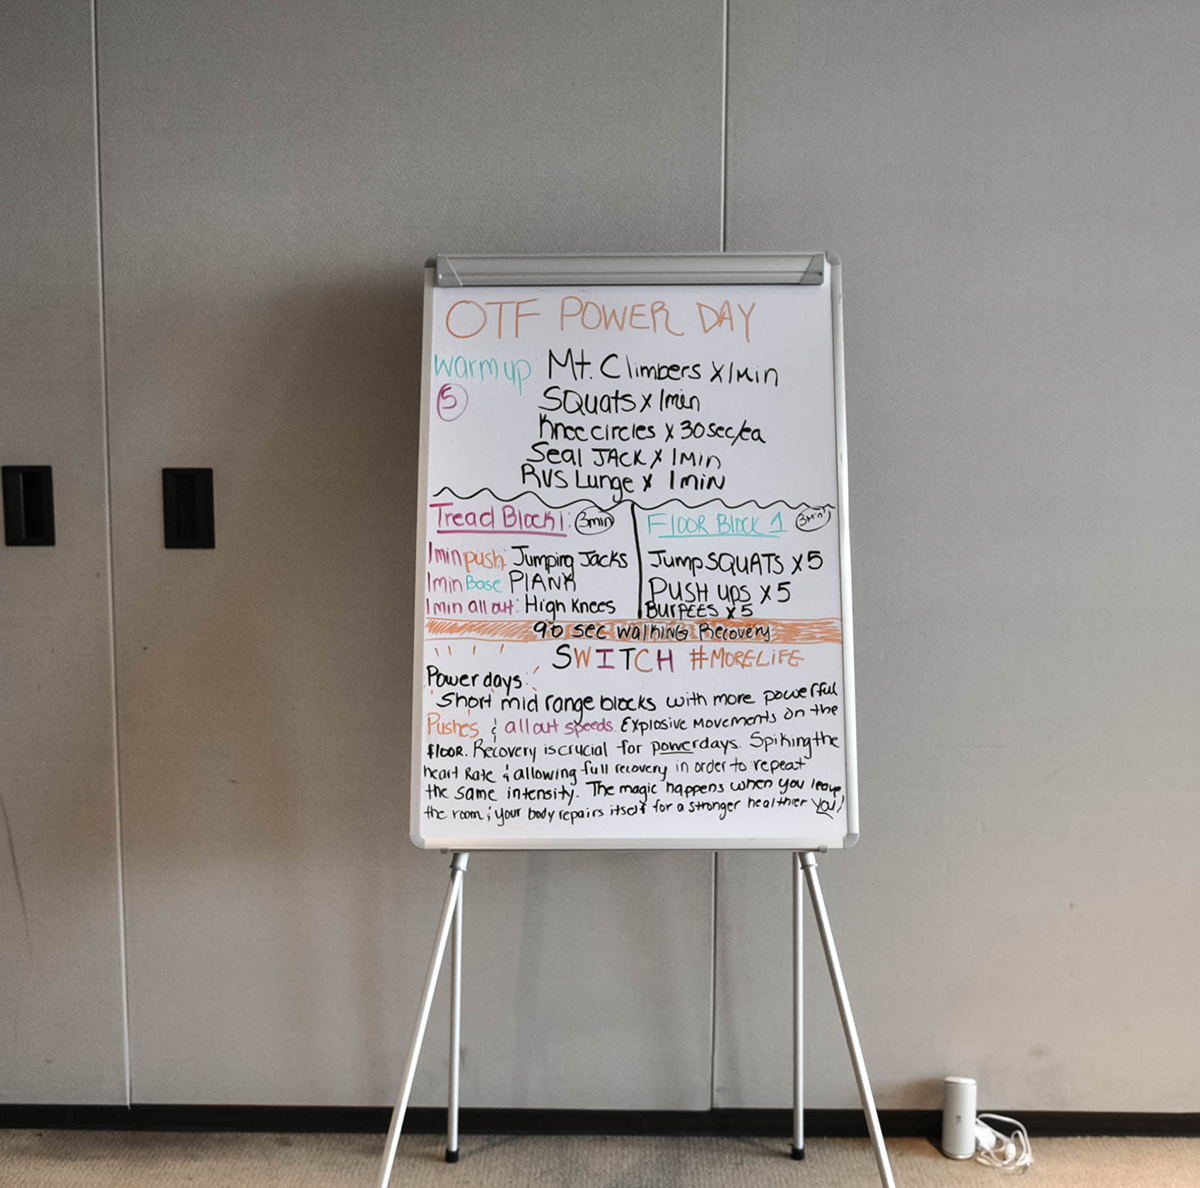 OTF POWER DAY
warm up: Mt. Climbers x 1min
5 SQuats x 1min
Knee circles x 30sec/ea
Seal JACK x 1min
RVS Lunge x 1min
Tread Block 1: 3min
1min push: Jumping Jacks
1min Base PLANK
1min all out: High Knees
FLOOR BLOCK 1 3min
Jump SQUATS x 5
PUSH ups x 5
BURPEES x 5
90 sec walking Recovery
SWITCH #MORELIFE
Power days:
Short mid range blocks with more powerful
Pushes & all out speeds. Explosive movements on the
floor. Recovery is crucial for powerdays. Spiking the
heart Rate & allowing full recovery in order to repeat
the same intensity. The magic happens when you leave
the room & your body repairs itself for a stronger healthier you!